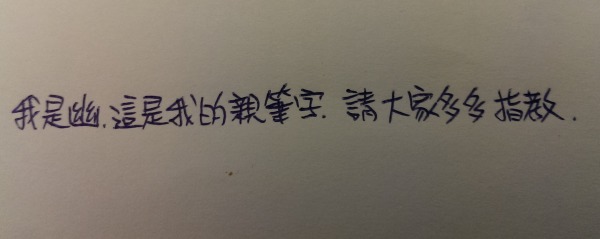 我是幽.這是我的親筆字.請大家多多指教.